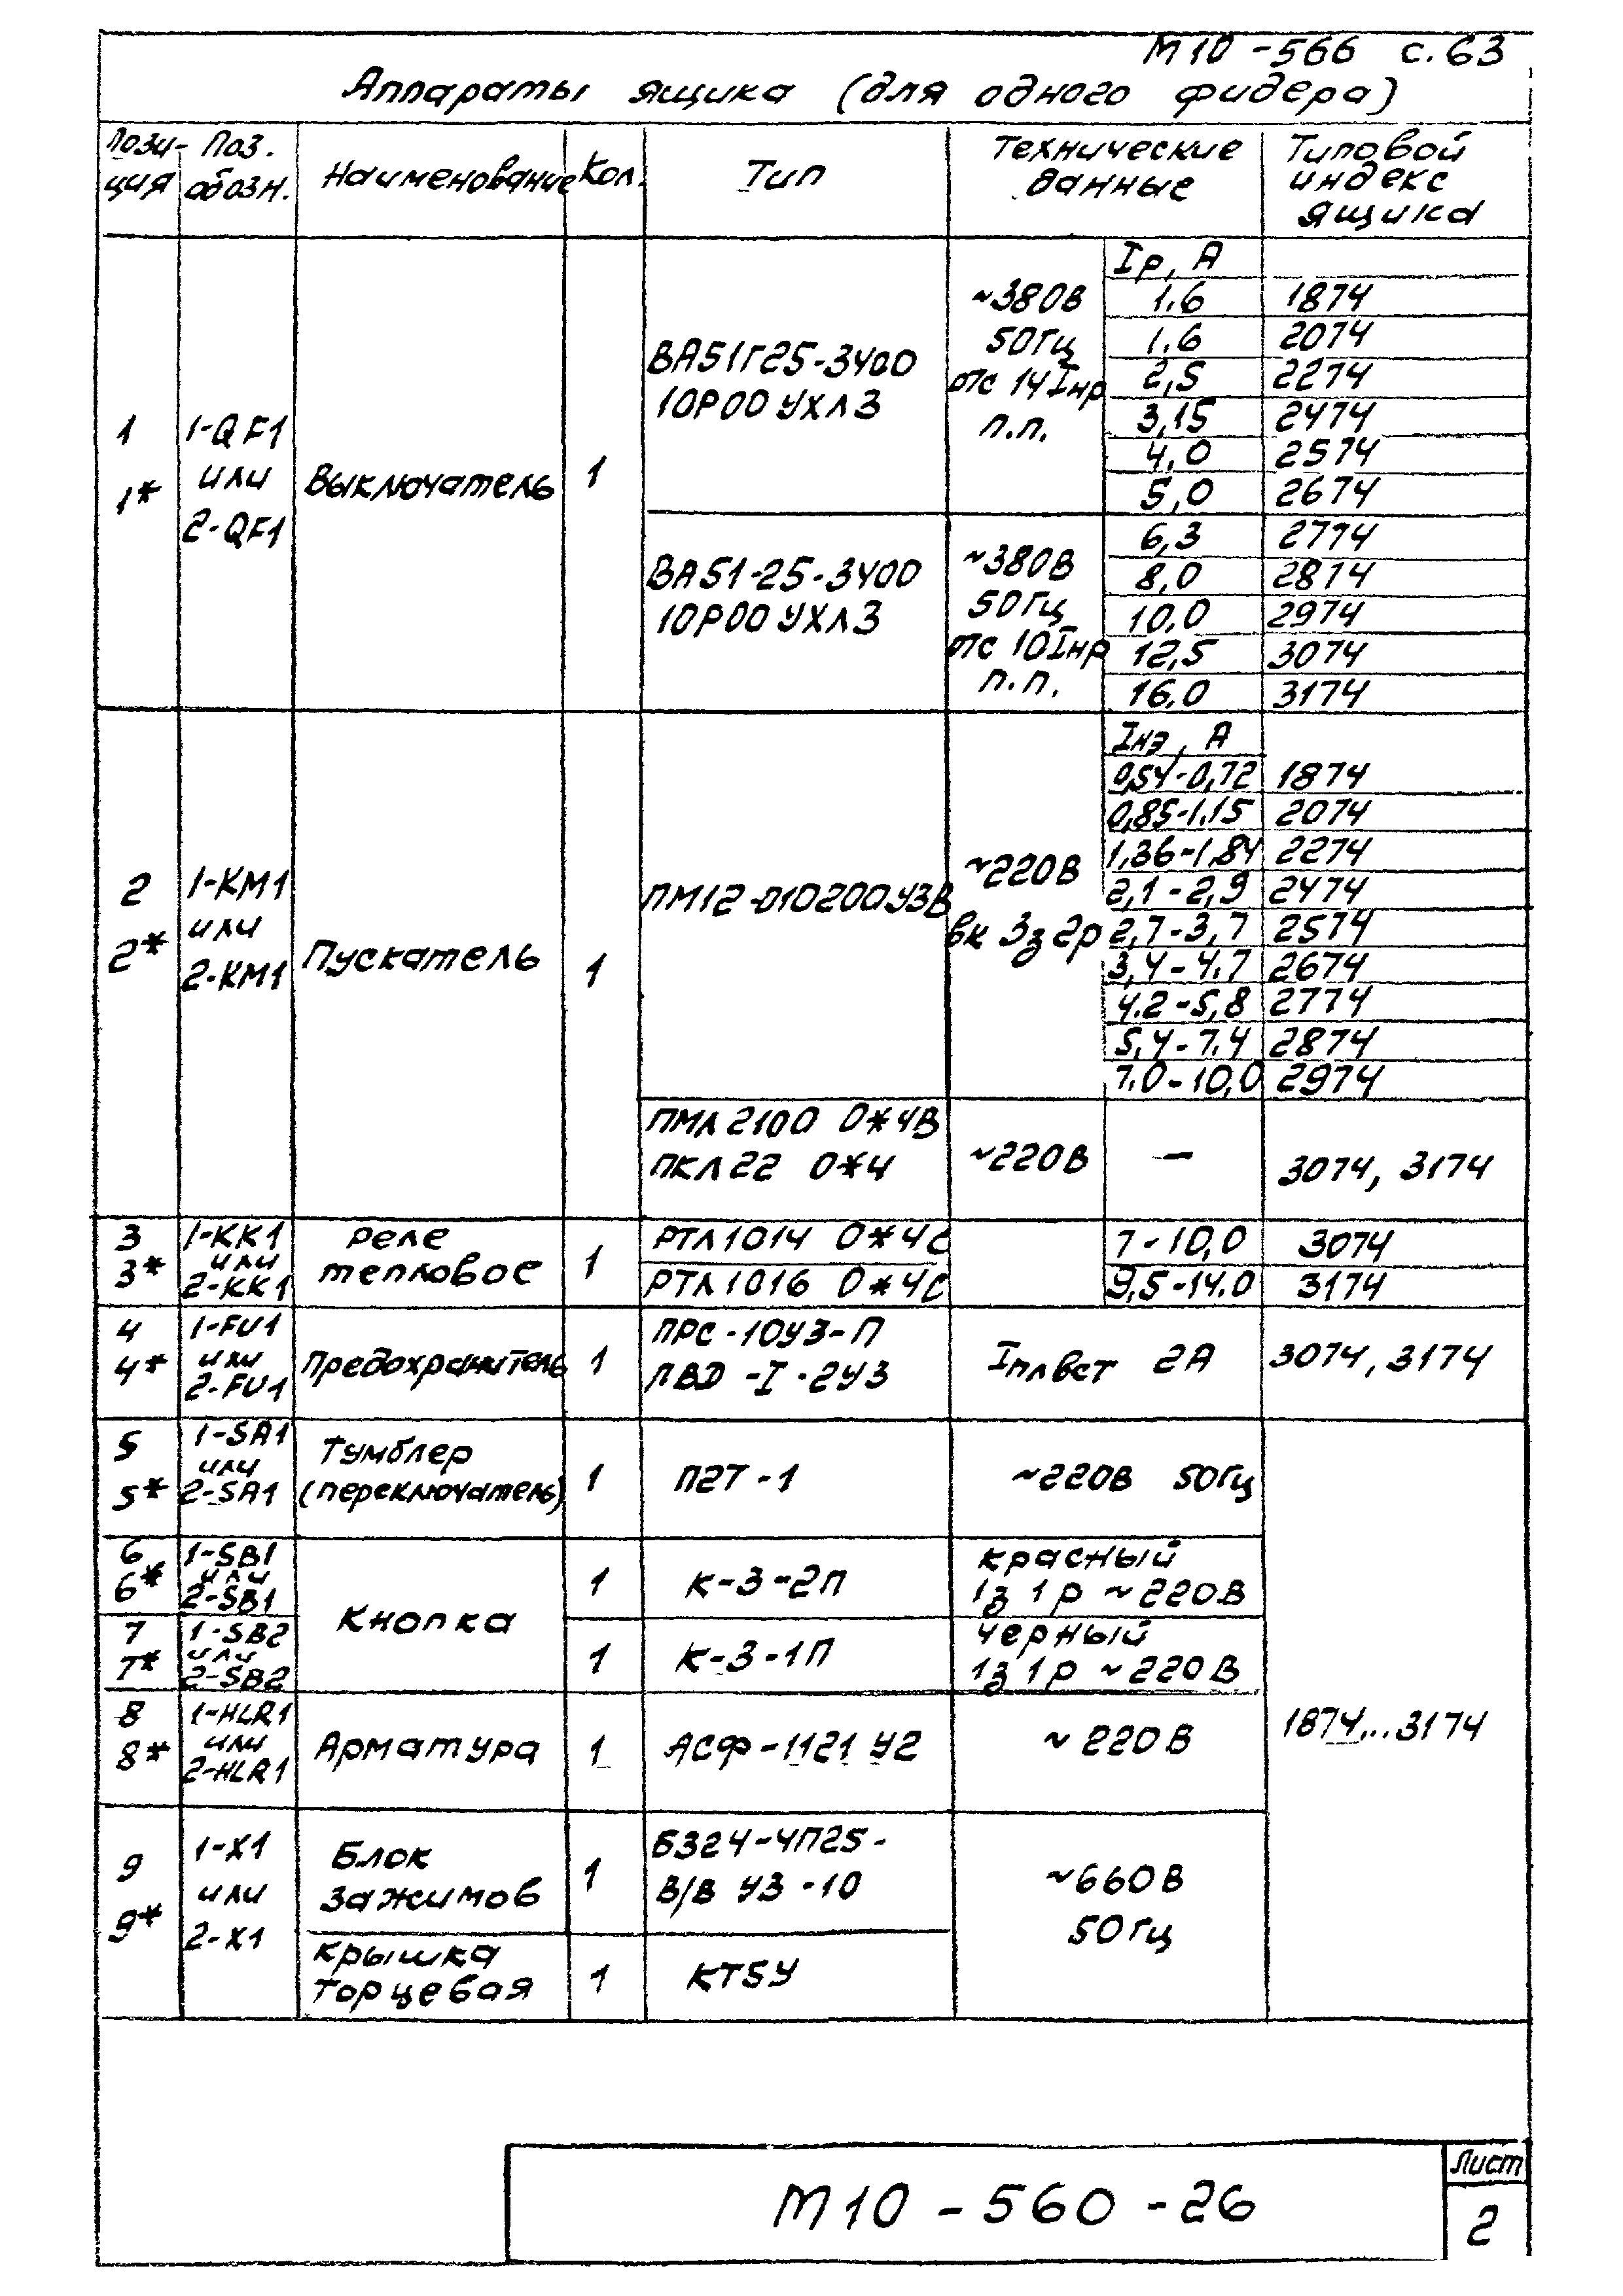 М10-566 с.63
Аппараты ящика (для одного фидера)
Пози-
ция
Поз.
обозн.
Наименование
Кол.
Тип
Технические
данные
Типовой
индекс
ящика
1
1*
1-QF1
или
2-QF1
Выключатель
1
ВА51Г25-3400
10Р00 УХЛ3
~380В
50Гц
отс 14Iнр
п.п.
Iр, А
1.6 1874
1.6 2074
2,5 2274
3,15 2474
4,0 2574
5,0 2674
ВА51-25-3400
10Р00 УХЛ3
~380В
50Гц
отс 10Iнр
п.п.
6,3 2774
8,0 2874
10,0 2974
12,5 3074
16,0 3174
2
2*
1-КМ1
или
2-КМ1
Пускатель
1
ПМ12-010200У3В
~220В
вк 3з 2р
Iнэ, А
0,54-0,72 1874
0,85-1.15 2074
1,36-1,84 2274
2,1-2,9 2474
2,7-3,7 2574
3,4-4.7 2674
4.2-5,8 2774
5,4-7.4 2874
7.0-10,0 2974
ПМЛ2100 О*4В
ПКЛ22 О*4
~220В
—
3074, 3174
3
3*
1-КК1
или
2-КК1
Реле
тепловое
1
РТЛ1014 О*4С 7-10,0 3074
РТЛ1016 О*4С 9,5-14.0 3174
4
4*
1-FU1
или
2-FU1
Предохранитель
1
ПРС-10У3-П
ПВД-I-2У3
Iплвст 2А
3074, 3174
5
5*
1-SA1
или
2-SA1
Тумблер
(переключатель)
1
П2Т-1
~220В 50Гц
6
6*
1-SB1
или
2-SB1
Кнопка
1
К-3-2П
красный
1з 1р ~220В
7
7*
1-SB2
или
2-SB2
1
К-3-1П
черный
1з 1р ~220В
8
8*
1-HLR1
или
2-HLR1
Арматура
1
АСФ-1121 У2
~220В
1874...3174
9
9*
1-X1
или
2-X1
Блок
зажимов
1
Б324-4П25-
В/В У3-10
~660В
50Гц
крышка
торцевая
1
КТ5У
М10-560-26
Лист
2